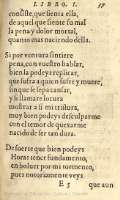 LIBRO. I. 37
consiste, que sienta ella,
de aquel que siente su mal
la pena y dolor mortal,
quanto mas naciendo della.
Si por ventura sintiere
pena, con vuestro hablar,
bien la podeys replicar,
que sufra a quien sufre y muere,
sin que le sepa
y si llamare locura
mostrar a si mi tristura,
muy bien podeys desculparme
con el temor de quexarme
nacido de ser tan dura.
De suerte que bien podeys
Horas tener fundamento,
en boluer por mi tormento,
pues notoriamente veys
E 5 que aun